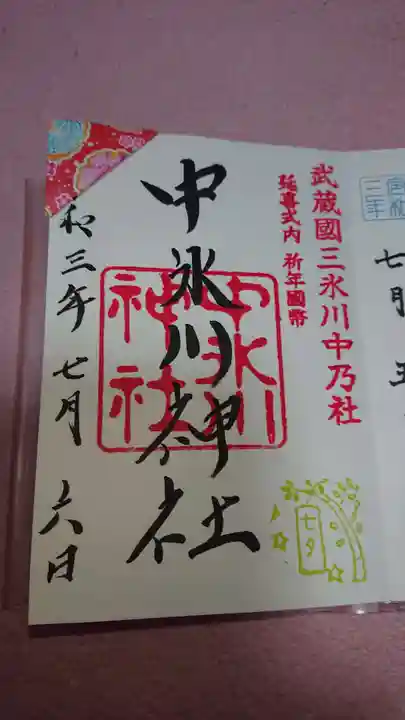 武蔵國三氷川中乃社
延喜式内 祈年國幣
中氷川神社
中氷川
神社
和三年七月六日
七夕
七月五
三年